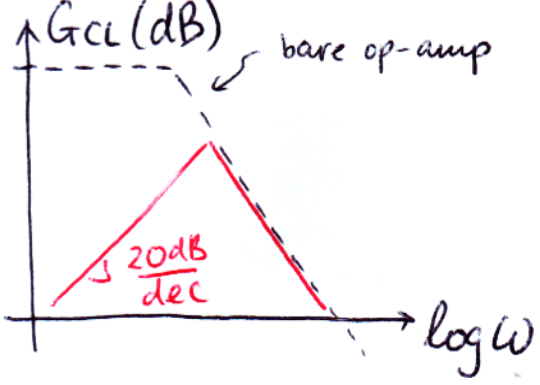 GCL (dB)
bare op-amp
20dB
dec
log ω